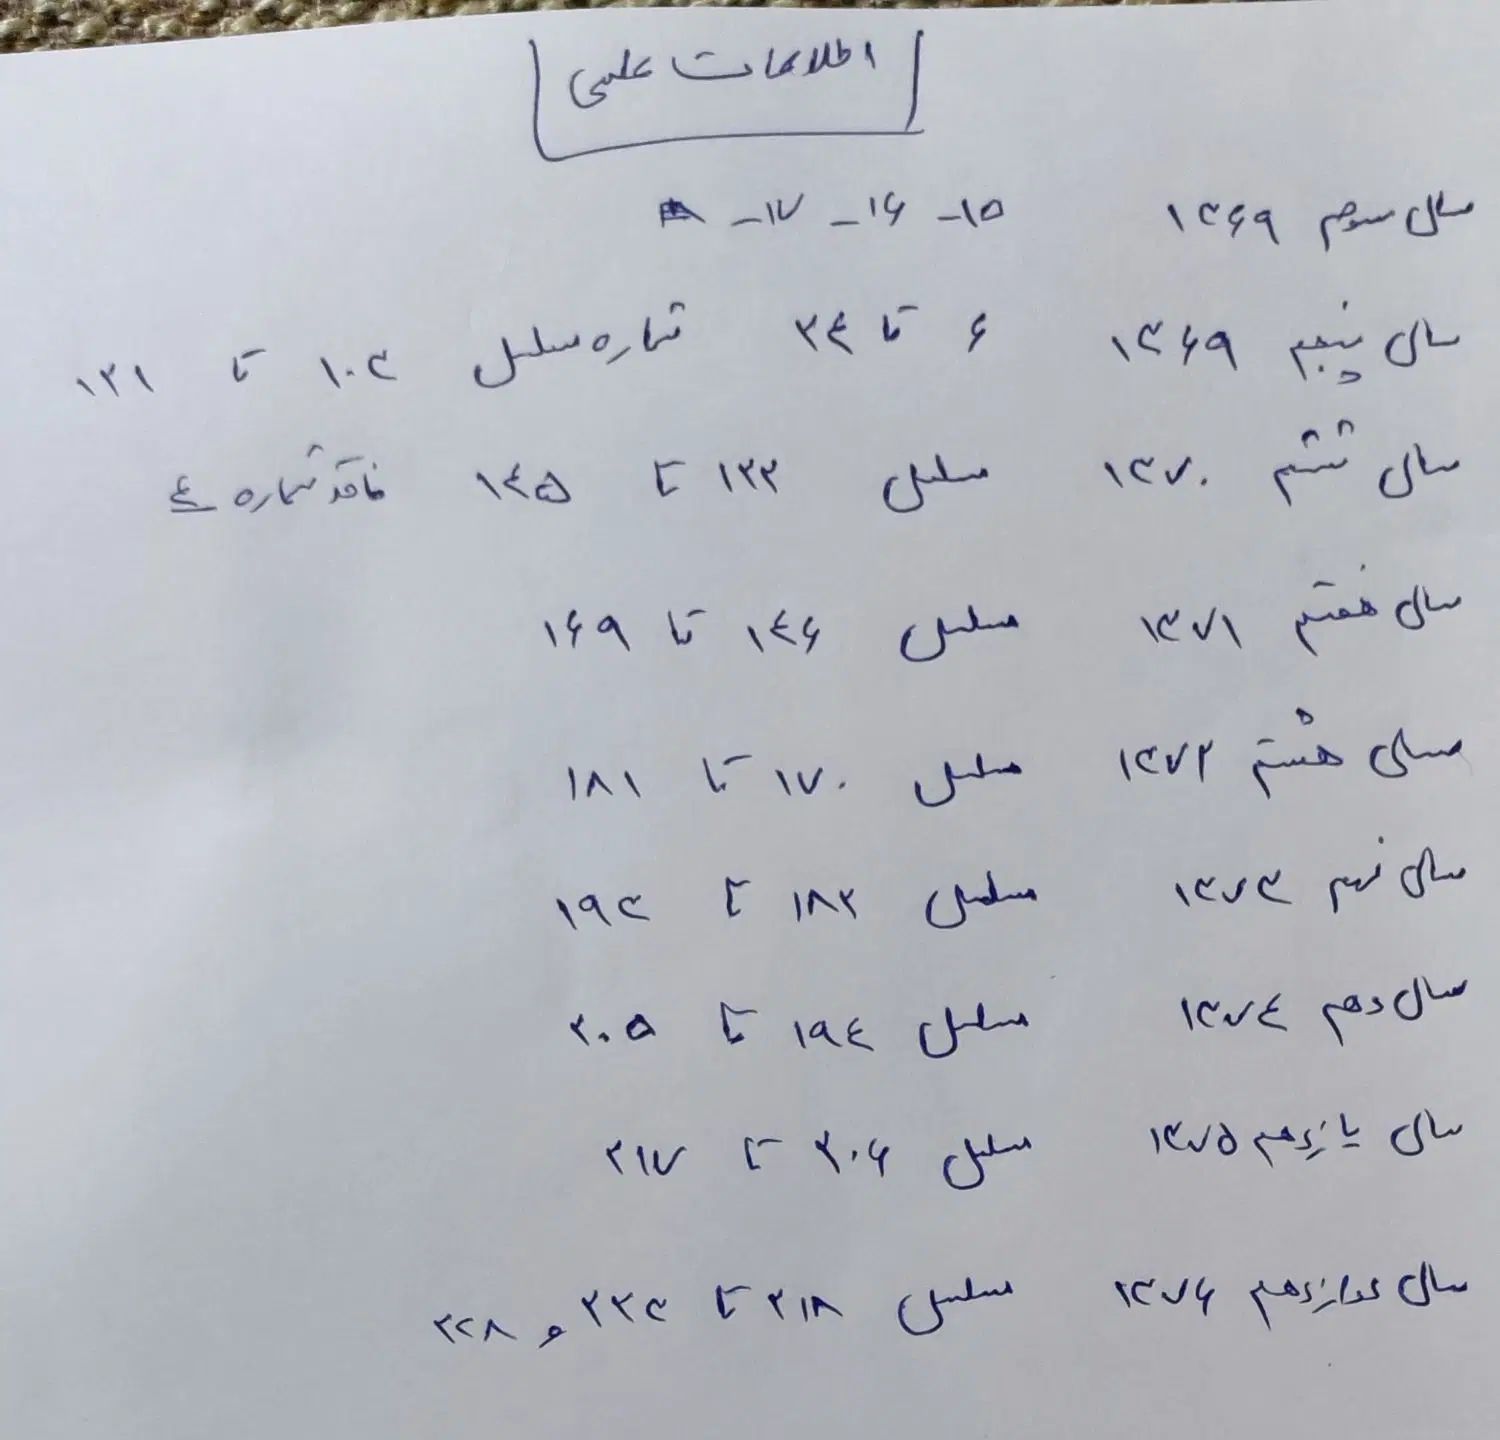 اطلاعات علمی
سال سوم ۱۳۶۹ ۱۵- ۱۶- ۱۷-
سال پنجم ۱۳۶۹ ۶ تا ۲۴ شماره مسلسل ۱۰۳ تا ۱۲۱
سال ششم ۱۳۷۰ مسلسل ۱۲۲ تا ۱۴۵ فاقد شماره ۴
سال هفتم ۱۳۷۱ مسلسل ۱۴۶ تا ۱۶۹
سال هشتم ۱۳۷۲ مسلسل ۱۷۰ تا ۱۸۱
سال نهم ۱۳۷۳ مسلسل ۱۸۲ تا ۱۹۳
سال دهم ۱۳۷۴ مسلسل ۱۹۴ تا ۲۰۵
سال یازدهم ۱۳۷۵ مسلسل ۲۰۶ تا ۲۱۷
سال دوازدهم ۱۳۷۶ مسلسل ۲۱۸ تا ۲۲۳ و ۲۲۸